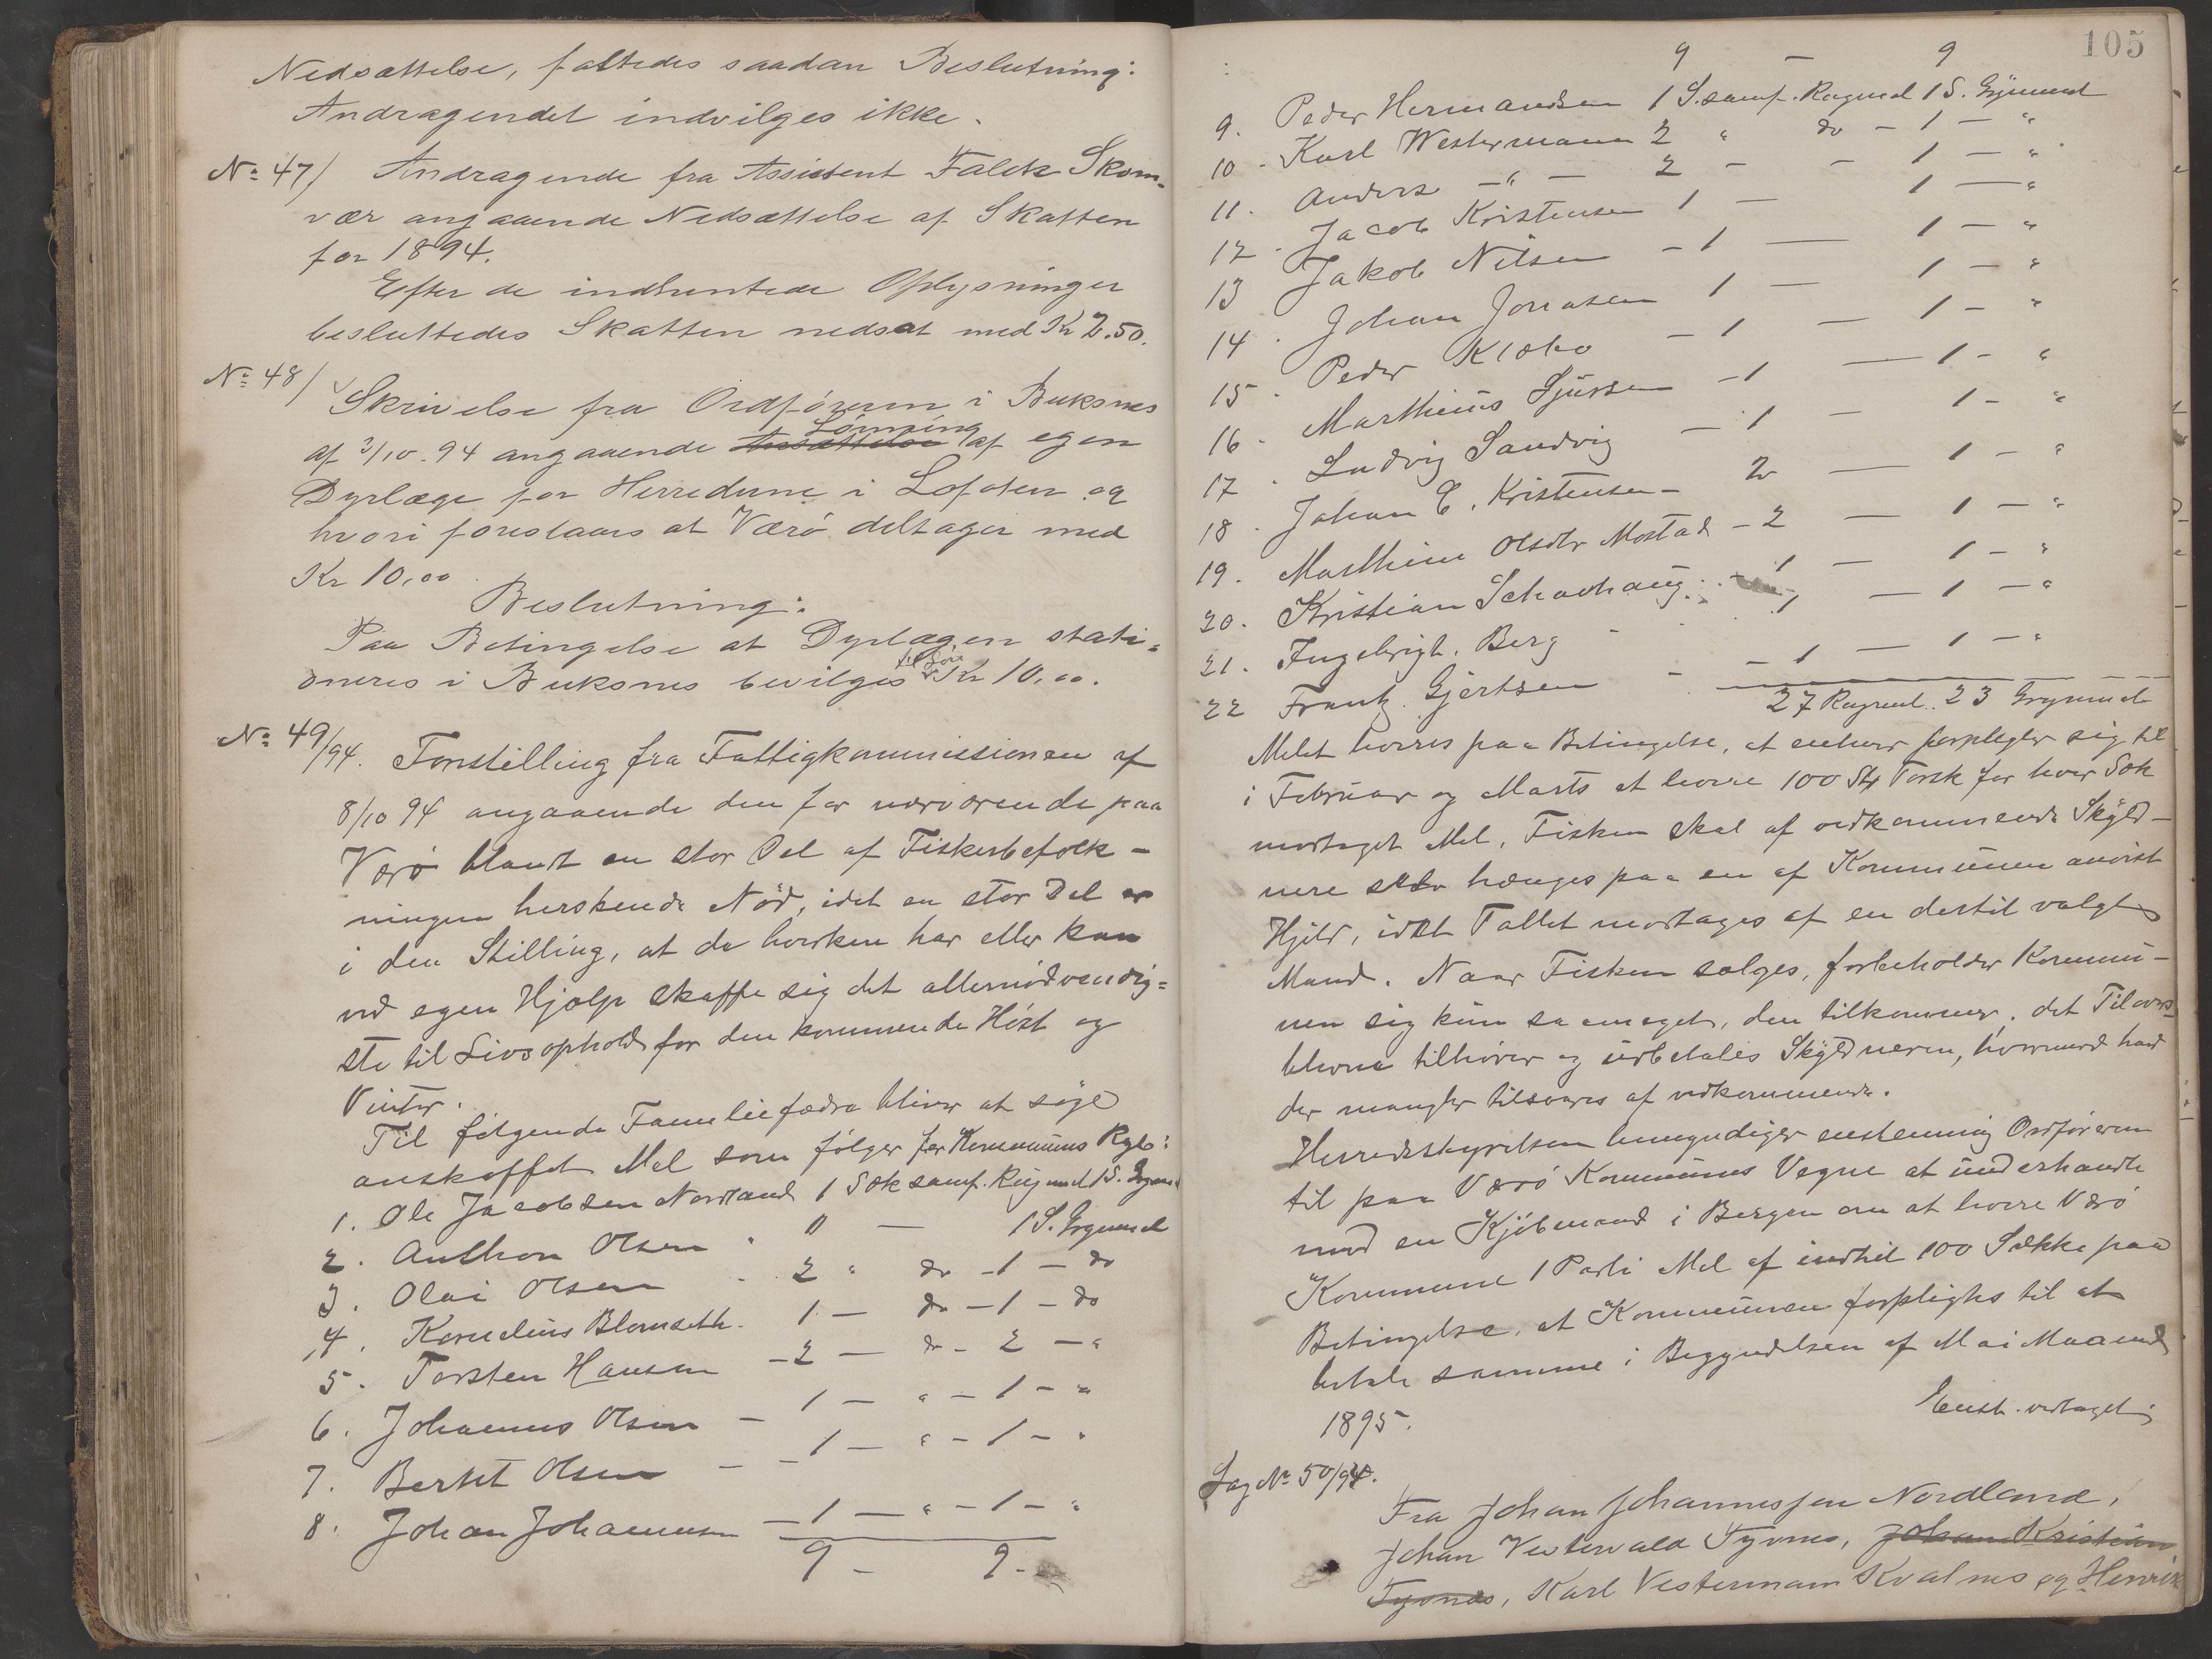 Nedsættelse, fattedes saadan Beslutning:
Andragendet indvilges ikke.
No 47/ Andragende fra Assistent Falck Skom-
vær angaaende Nedsættelse af Skatten
for 1894.
Efter de indhentede Oplysninger
besluttedes Skatten nedsat med Kr 2.50.
No 48/ Skrivelse fra Ordføreren i Buksnes
af 3/10.94 angaaende Ansættelse Lønning af egen
Dyrlæge for Herrederne i Lofoten og
hvori foreslaaes at Værö deltager med
Kr 10,00.
Beslutning:
Paa Betingelse at Dyrlægen stati=
oneres i Buksnes bevilges Kr 10,00.
No 49/94. Forestilling fra Fattigkommissionen af
8/10 94 angaaende den for nærværende paa
Værö blandt en stor Del af Fiskerbefolk-
ningen herskende Nöd, idet en stor Del er
i den Stilling, at de hverken har eller kan
ved egen Hjælp skaffe sig det allernödvendig=
ste til Livsophold for den kommende Höst og
Vinter.
Til følgende Familiefædre bliver at söge
anskaffet Mel som fölger for Kommunens Regb:
1. Ole Jacobsen Nordland 1 Sæk samf. Rugmel 1 S. Grynmel
2. Anthon Olsen " 1 S. Grynmel
3. Olai Olsen 2 " do - 1 - do
4. Kornelius Blomseth. 1 - do - 1 - do
5. Torsten Hansen - 2 - do - 2 - "
6. Johannes Olsen - 1 - " - 1 - "
7. Berht Olsen - 1 - " - 1 - "
8. Johan Johannesen - 1 - " - 1 - "
9 - 9 -
105
9 - 9
9. Peder Hermandsen 1 S. samf. Rugmel 1 S. Grynmel
10. Karl Westermann 2 " do - 1 - "
11. Anders - " - 2 - - 1 - "
12. Jacob Kristensen 1 - 1 - "
13 Jakob Nilsen - 1 - 1 - "
14. Johan Jonasen 1 - 1 - "
15. Peder Klæbo - 1 - 1 - "
16. Marthinus Sjursen - 1 - 1 - "
17. Ludvig Sandvig - 1 - 1 - "
18. Johan E. Kristensen - 2 - 1 - "
19. Marthine Olsdtr Mostad - 2 - 1 - "
20. Kristian Schavhaug - 1 - 1 - "
21. Ingebrigt. Berg 1 - 1 - "
22 Frantz. Gjertsen - 1 - 1 - "
27 Rugmel. 23 Grynmel
Melet leveres paa Betingelse, at enhver forpligter sig til
i Februar og Marts at levere 100 St. Torsk for hver Sæk
modtaget Mel. Fisken skal af vedkommende Skyld-
nere selv hænges paa en af Kommunen anvist
Hjeld, idet Tallet modtages af en dertil valgt
Mand. Naar Fisken sælges, forbeholder Kommu-
nen sig kun saameget, den tilkommer, det Tilovers-
blevne tilhører og udbetales Skyldneren, hvorimod hvad
der mangler tilsvares af vedkommende.
Herredsstyrelsen bemyndiger enstemmig Ordføreren
til paa Værö Kommunes Vegne at underhandle
med en Kjöbmand i Bergen om at levere Værö
Kommune 1 Parti Mel af indtil 100 Sække paa
Betingelse, at Kommunen forpligtes til at
betale samme i Begyndelsen af Mai Maaned
1895. Enst. vedtaget
Sag No 50/94.
Fra Johan Johannessen Nordland,
Johan Vestervald Tyvnes, Johan Kristian
Tyvnes, Karl Vestermann Kvalnes og Henrik